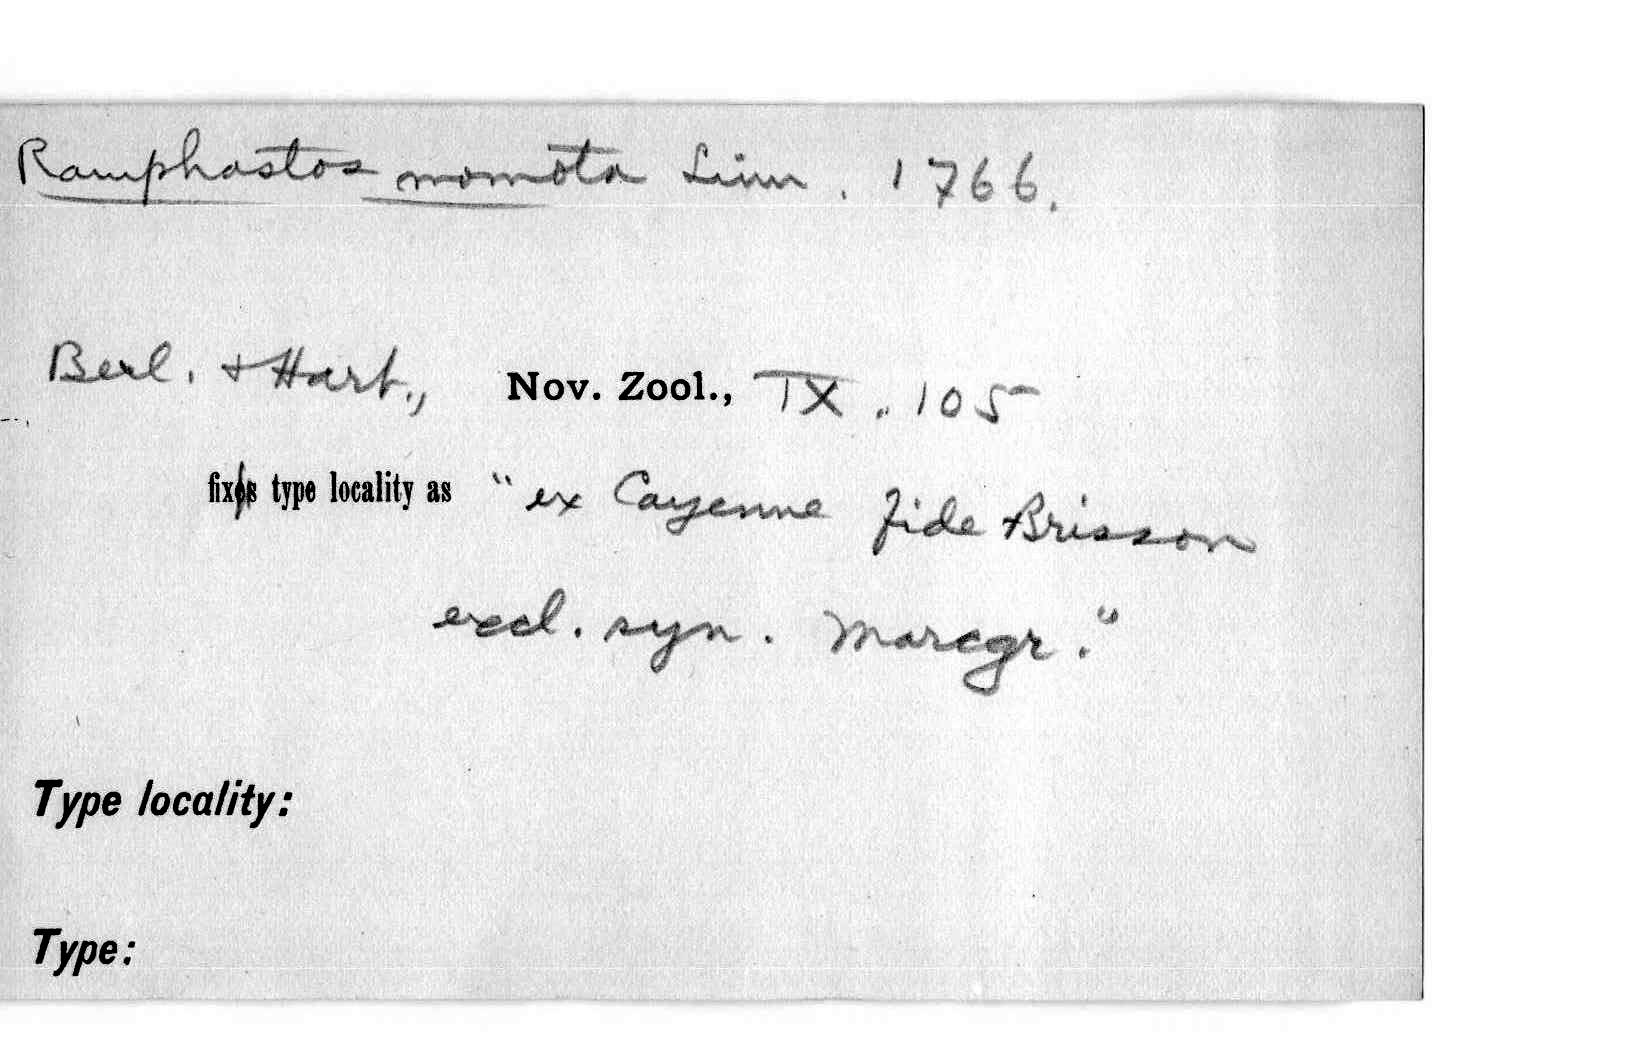 Ramphastos momota Linn. 1766.
Berl. + Hart., Nov. Zool., IX. 105
fix type locality as "ex Cayenne fide Brisson
excl. syn. Marcgr."
Type locality:
Type: